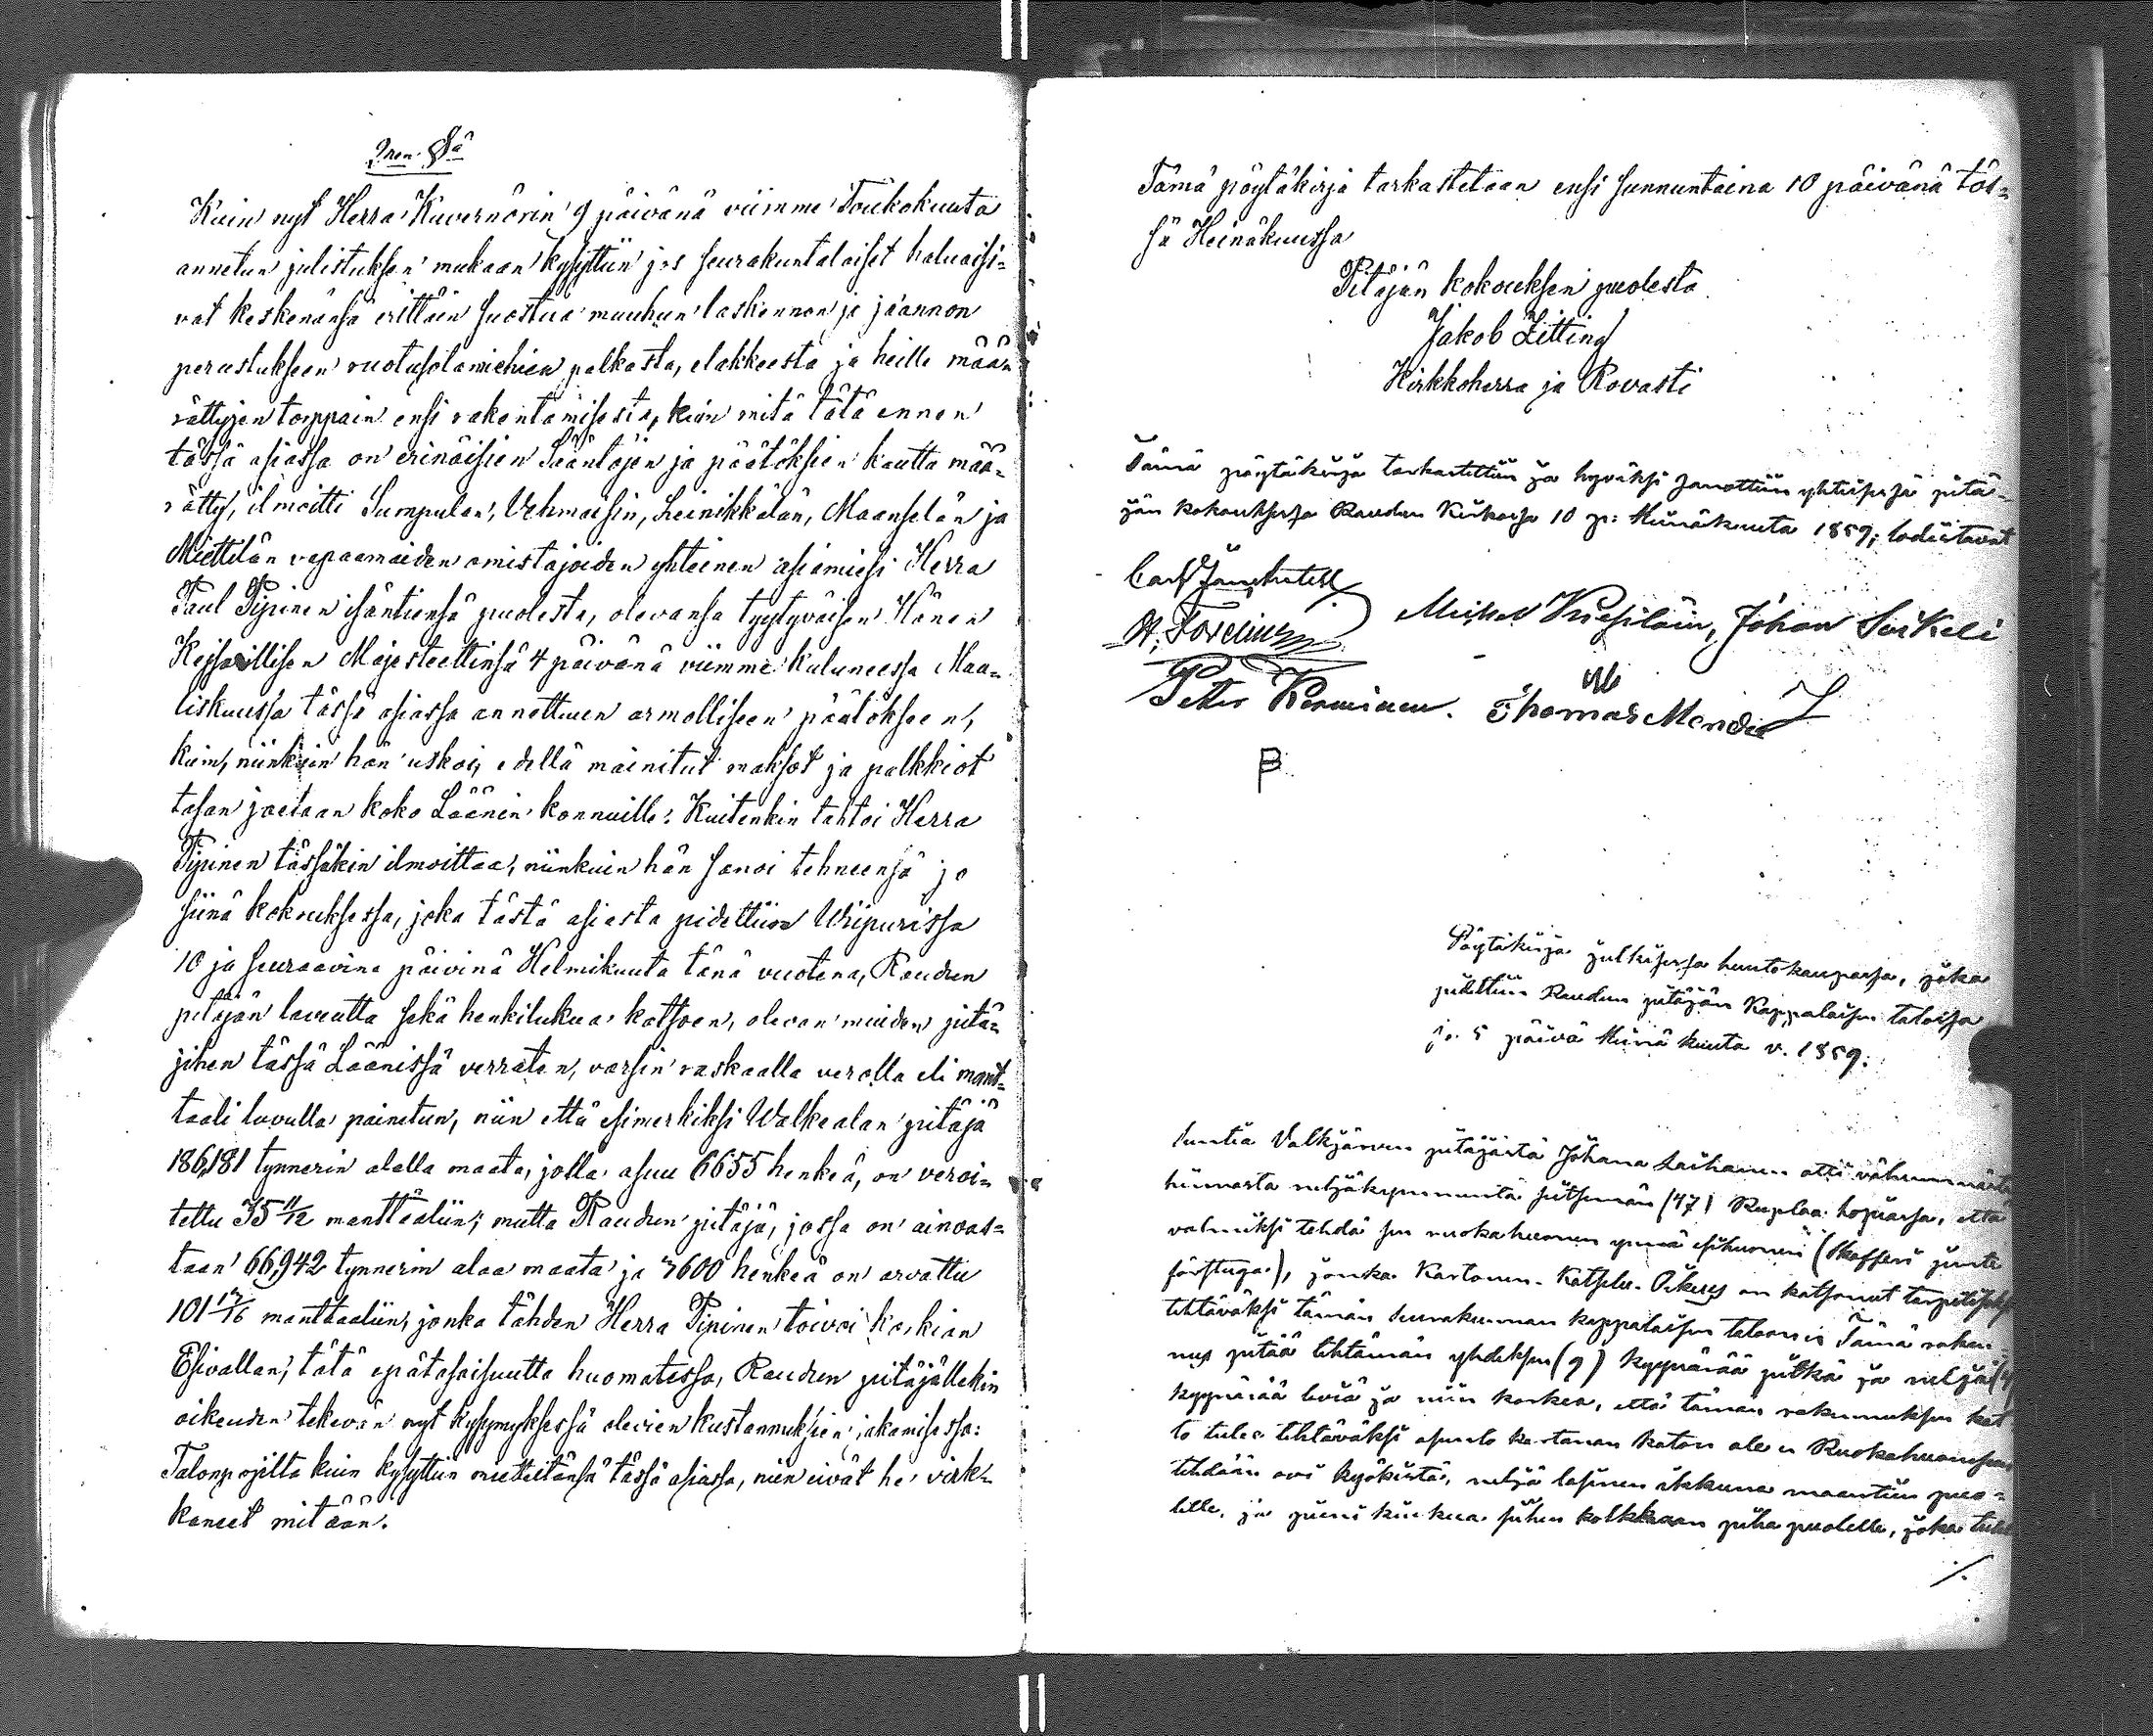 2nen §ä
Kuin nyt Herra Kuvernörin 9 päivänä viimme Toukokuuta
annetun julistuksen mukaan kysyttiin jos seurakuntalaiset haluaisi=
vat keskenänsä erittäin suostua muuhun laskennon ja jäännon
perustukseen ruotusotamiehien palkasta, elakkeesta ja heille mää=
rättyjen torppain ensi rakentamisesta, kuin mitä tätä ennen
tässä asiassa on erinäisien Sääntöjen ja päätöksien kautta mää=
rätty, ilmoitti Sumpulan, Vehmaisin, Leinikkälän, Maanselän ja
Miettilän vapaamaiden omistajoiden yhteinen asiamiesi Herra
Paul Pipinen isäntiensä puolesta, olevansa tyytyväisen Hänen
Kejsarillisen Majesteettinsä 4 päivänä viimme kuluneessa Maa=
liskuussa tässä asiassa annettuun armolliseen päätökseen,
kuin, niinkuin hän uskoi, edellä mainitut maksot ja palkkiot
tasan jaetaan koko Läänin konnuille. Kuitenkin tahtoi Herra
Pipinen tässäkin ilmoittaa, niinkuin hän sanoi tehneensä jo
siinä kokouksessa, joka tästä asiasta pidettiin Wiipurissa
10 ja seuraavina päivinä Helmikuuta tänä vuotena, Raudun
pitäjän laveutta sekä henkilukua katsoen, olevan muiden pitä=
jihen tässä Läänissä verraten, varsin raskaalla verolla eli mant=
taali luvulla painetun, niin että esimerkiksi Walkealan pitäjä
186,181 tynnerin alalla maata, jolla asuu 6655 henkeä, on veroi=
tettu 35 11/12 manttaaliin; mutta Raudun pitäjä, jossa on ainoas=
taan 66,942 tynnerin alaa maata ja 3600 henkeä on arvattu
101 manttaaliin, jonka tähden Herra Pipinen toivoi korkian
Esivallan, tätä epätasaisuutta huomatessa, Raudun pitäjällekin
oikeuden tekevän nyt kysymyksessä olevien kustannuksien jakamisessa:
Talonpojilta kuin kysyttiin mietteitänsä tässä asiassa, niin eivät he virk=
kaneet mitään.
Tämä pöytäkirja tarkastetaan ensi sunnuntaina 10 päivänä täs=
sä Heinäkuussa
Pitäjän kokouksen puolesta
Jakob Zitting
Kirkkoherra ja Rovasti
Tämä pöytäkirja tarkastettiin ja hyväksi sanottiin yhteisessä pitä=
jän kokouksessa Raudun Kirkossa 10 p: Heinäkuuta 1859; todistavat
Carl
A. Forelius
Michel Kiesiläin, Johan Sirkeli
Peter Korminen. Thomas Mende
Pöytäkirja julkisessa huutokaupassa, joka
pidettiin Raudun pitäjän Kappalaisen talossa
jo. 5 päivä Heinä kuuta v. 1859.
Suntia Valkjärven pitäjästä Johana Laihanen otti vähemmästä
hinnasta neljäkymmentä seitsemän (47) Ruplaa hopiassa, että
valmiiksi tehdä sen ruokahuonen ynnä esihuonen (Skafferi jemte
förstuga), jonka Kartonon-Katselu-Oikeus on katsonut tarpeliseksi
tehtäväksi tämän seurakunnan kappalaisen taloon. Tämä raken=
nus pitää tehtämän yhdeksen (9) kyynärää pitkä ja neljä (4)
kyynärää leviä ja niin korkea, että tämän rakennuksen kat
to tulee tehtäväksi asunto kartanon katon ale. Ruokahuoneseen
tehdään ovi kyökistä, neljä lasinen ikkuna maantien puo=
lelle, ja pieni kiukua siihen kolkkaan piha puolelle, joka tulee
./.